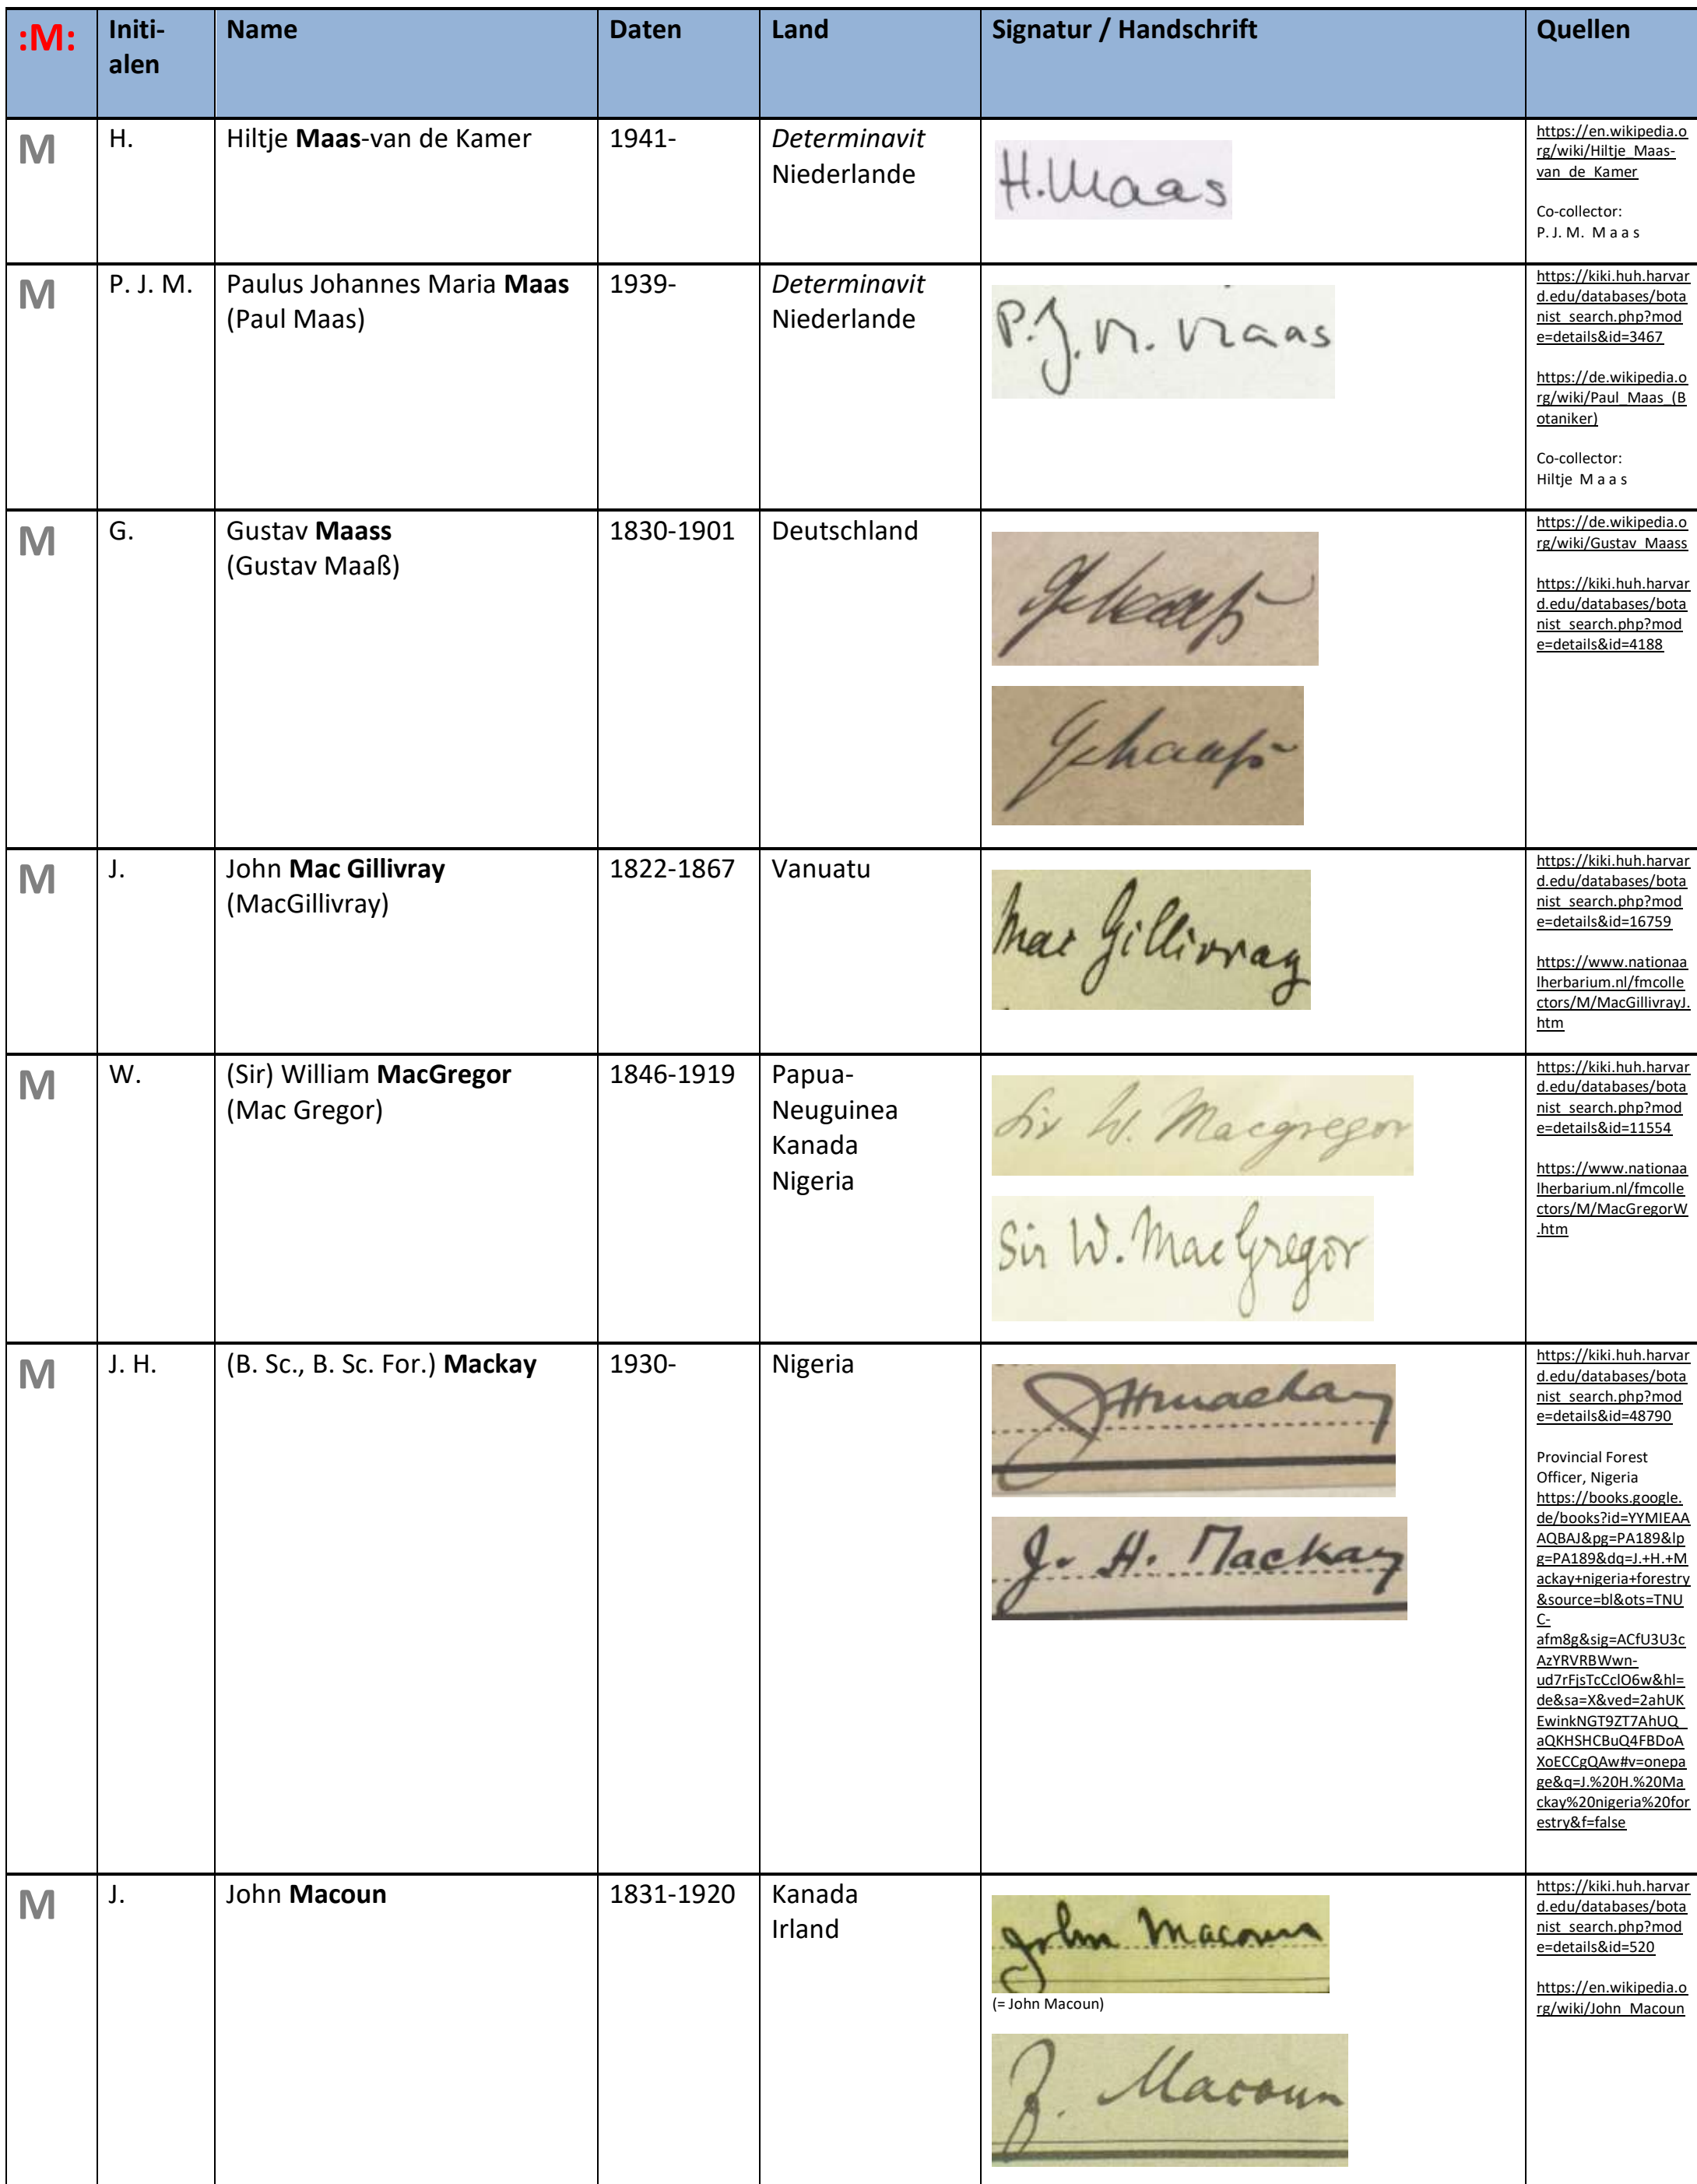 :M: Initi- Name Daten Land Signatur / Handschrift Quellen
alen
M H. Hiltje Maas-van de Kamer 1941- Determinavit
Niederlande
H. Maas
https://en.wikipedia.o
rg/wiki/Hiltje_Maas-
van_de_Kamer
Co-collector:
P. J. M. M a a s
M P. J. M. Paulus Johannes Maria Maas 1939- Determinavit
(Paul Maas) Niederlande
P. J. M. Maas
https://kiki.huh.harvar
d.edu/databases/bota
nist_search.php?mod
e=details&id=3467
https://de.wikipedia.o
rg/wiki/Paul_Maas_(B
otaniker)
Co-collector:
Hiltje M a a s
M G. Gustav Maass 1830-1901 Deutschland
(Gustav Maaß)
GMaaß
GMaaß
https://de.wikipedia.o
rg/wiki/Gustav_Maass
https://kiki.huh.harvar
d.edu/databases/bota
nist_search.php?mod
e=details&id=4188
M J. John Mac Gillivray 1822-1867 Vanuatu
(MacGillivray)
Mac Gillivray
https://kiki.huh.harvar
d.edu/databases/bota
nist_search.php?mod
e=details&id=16759
https://www.nationaa
lherbarium.nl/fmcolle
ctors/M/MacGillivrayJ.
htm
M W. (Sir) William MacGregor 1846-1919 Papua-
(Mac Gregor) Neuguinea
Kanada
Nigeria
Sir W. Macgregor
Sir W. MacGregor
https://kiki.huh.harvar
d.edu/databases/bota
nist_search.php?mod
e=details&id=11554
https://www.nationaa
lherbarium.nl/fmcolle
ctors/M/MacGregorW
.htm
M J. H. (B. Sc., B. Sc. For.) Mackay 1930- Nigeria
JHmackay
J. H. Mackay
https://kiki.huh.harvar
d.edu/databases/bota
nist_search.php?mod
e=details&id=48790
Provincial Forest
Officer, Nigeria
https://books.google.
de/books?id=YYMIEAA
AQBAJ&pg=PA189&lp
g=PA189&dq=J.+H.+M
ackay+nigeria+forestry
&source=bl&ots=TNU
C-
afm8g&sig=ACfU3U3c
AzYRVRBWwn-
ud7rFjsTcCclO6w&hl=
de&sa=X&ved=2ahUK
EwinkNGT9ZT7AhUQ_
aQKHSHCBuQ4FBDoA
XoECCgQAw#v=onepa
ge&q=J.%20H.%20Ma
ckay%20nigeria%20for
estry&f=false
M J. John Macoun 1831-1920 Kanada
Irland
John Macoun
(= John Macoun)
J. Macoun
https://kiki.huh.harvar
d.edu/databases/bota
nist_search.php?mod
e=details&id=520
https://en.wikipedia.o
rg/wiki/John_Macoun